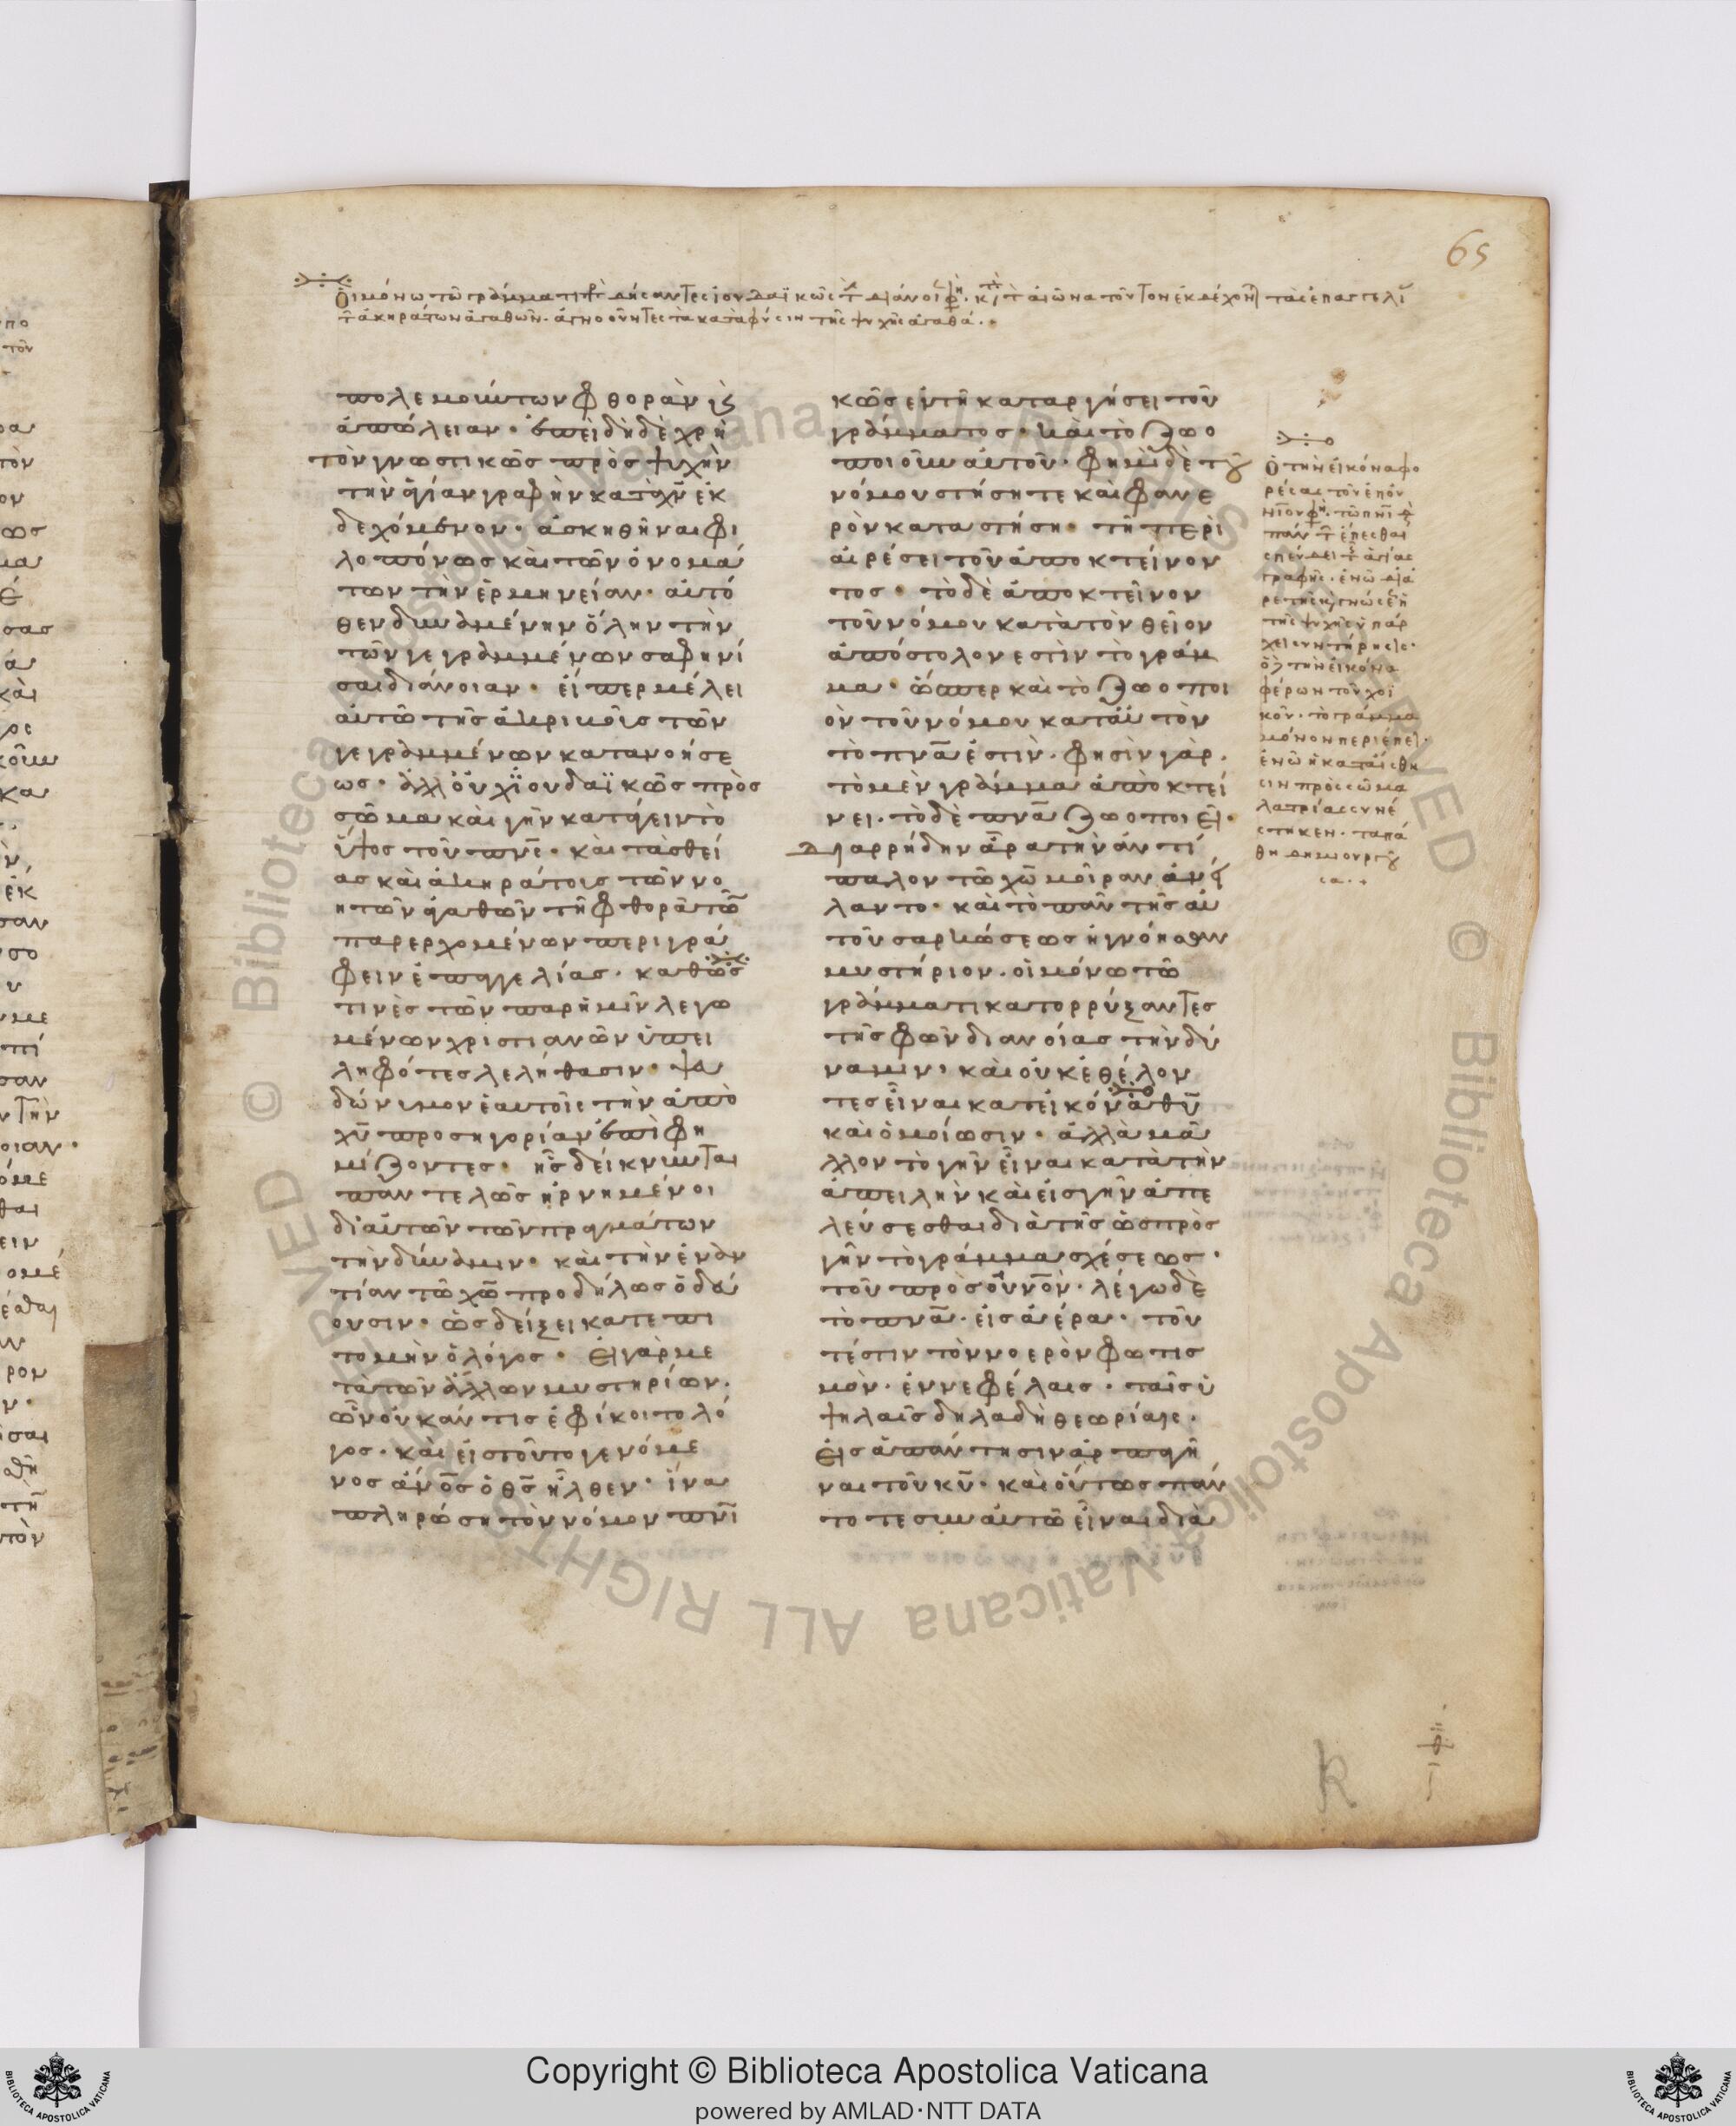 65
Οἱ μόνω τῶ γράμματι
τῶν ἀκηράτων ἀγαθῶν· ἀγνοοῦντες τὰ κατὰ φύσιν τῆς ψυχῆς ἀγαθά·
πολεμούντων φθορὰν κ(αὶ)
ἀπώλειαν· ἐπειδὴ δὲ χρὴ
τὸν γνωστικῶς πρὸς ψυχὴν
τὴν ἁγίαν γραφὴν κατὰ χν ἐκ
δεχόμενον· ἀσκηθῆναι φι
λοπόνως καὶ τῶν ὀνομά
των τὴν ἑρμηνείαν· αὐτό
θεν δυναμένην ὅλην τὴν
τῶν γεγραμμένων σαφηνί
σαι διάνοιαν· εἴπερ μέλει
αὐτῶ τῆς ἀκριβοῦς τῶν
γεγραμμένων κατανοήσε
ως· ἀλλ' οὐχ ϊουδαϊκῶς πρὸς
σῶμα καὶ γῆν κατάγειν τὸ
ὕψος τοῦ πνς· καὶ τὰς θεί
ας καὶ ἀκηράτους τῶν νο
ητῶν ἀγαθῶν τῆ φθορᾶ τῶν
παρερχομένων περιγρά
φειν ἐπαγγελίας· καθώς
τινὲς τῶν παρ' ἡμῖν λεγο
μένων χριστιανῶν ὑπει
ληφότες λελήθασιν· ψευ
δώνυμον ἑαυτοῖς τὴν ἀπὸ
χυ προσηγορίαν ἐπιφη
μίζοντες· ἧς δείκνυνται
παντελῶς ἠρνημένοι
δι' αὐτῶν τῶν πραγμάτων
τὴν δύναμιν· καὶ τὴν ἐναν
τίαν τῶ χω προδήλως ὁδεύ
ουσιν· ὡς δείξει κατ' ἐπι
τομὴν ὁ λόγος· Εἰ γὰρ με
τὰ τῶν ἄλλων μυστηρίων·
ὧν οὐκ ἄν τις ἐφίκοιτο λό
γος· καὶ εἰς τοῦτο γενόμε
νος ἄνος ὁ θς ἦλθεν· ἵνα
πληρώση τὸν νόμον πνι
κῶς ἐν τῆ καταργήσει τοῦ
γράμματος· καὶ τὸ ζωο
ποιοῦν αὐτοῦ· φημὶ δὲ τοῦ
νόμου στήση τε καὶ φανε
ρὸν καταστήση· τῆ περι
αιρέσει τοῦ ἀποκτείνον
τος· τὸ δὲ ἀποκτεῖνον
τοῦ νόμου κατὰ τὸν θεῖον
ἀπόστολον ἐστὶν τὸ γράμ
μα· ὥσπερ καὶ τὸ ζωοποι
ὸν τοῦ νόμου κατ' αὐτὸν
τὸ πνα ἐστίν· φησὶν γάρ·
τὸ μὲν γράμμα ἀποκτεί
νει· τὸ δὲ πνα ζωοποιεῖ·
Διαρρήδην ἄρα τὴν ἀντί
παλον τῶ χω μοῖραν ἀνεί
λαντο· καὶ τὸ πᾶν τῆς αὐ
τοῦ σαρκώσεως ἠγνόησαν
μυστήριον· οἱ μόνω τῶ
γράμματι κατορρύξαντες
τῆς σφῶν διανοίας τὴν δύ
ναμιν· καὶ οὐκ ἐθέλον
τες εἶναι κατ' εἰκόνα θυ
καὶ ὁμοίωσιν· ἀλλὰ μᾶ
λλον τὸ γῆν εἶναι κατὰ τὴν
ἀπειλὴν καὶ εἰς γῆν ἀπε
λεύσεσθαι διὰ τῆς ὡς πρὸς
γῆν τὸ γράμμα σχέσεως·
τοῦ πρὸς οὐνὸν· λέγω δὲ
τὸ πνα· εἰς ἀέρα· τοῦ
τέστιν τὸν νοερὸν φωτισ
μὸν· ἐν νεφέλαις· ταῖς ὑ
ψηλαῖς δηλαδὴ θεωρίαις·
Εἰς ἀπάντησιν ἁρπαγῆ
ναι τοῦ κυ· καὶ οὕτως πάν
τοτε συν αὐτῶ εἶναι διὰ
Ὁ τὴν εἰκόνα φο
ρέσαι τοῦ ἐπου
ρέπεσθαι
σπεύδει
γραφῆς· ἐν ὧ
τῆς ψυχῆς ὑπάρ
χει συντήρησις·
ὁ δὲ τὴν εἰκόνα
φέρων τοῦ χοϊ
κοῦ· τὸ γράμμα
μόνον περιέπει·
ἐν ὧ ἡ κατ' αἴσθη
σιν πρὸς σῶμα
λατρία συνέ
στηκεν· τὰ πά
θη δημιουργοῦ
σα·
Copyright © Biblioteca Apostolica Vaticana
powered by AMLAD·NTT DATA